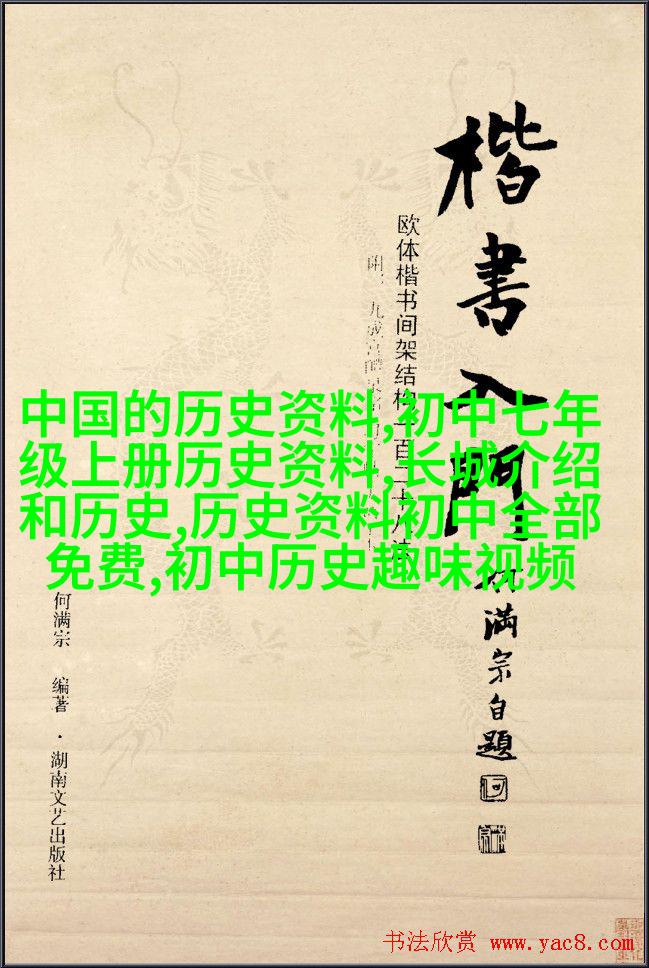 楷書入門
何滿宗自題
欧体楷书间架结构一百二十八法
中国的历史资料,初中七年
级上册历史资料,长城介绍
和历史,历史资料初中全部
免费,初中历史趣味视频
何满宗 编著·湖南文艺出版社
书法欣赏 www.yac8.com